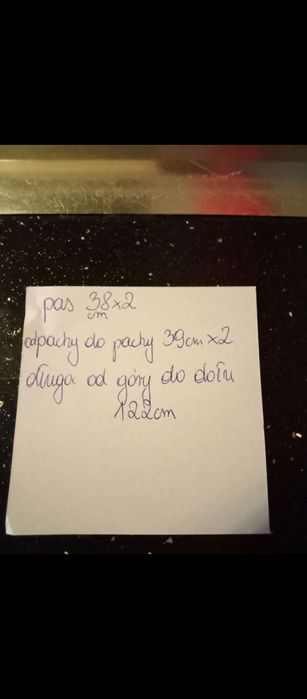 pas 38x2
cm
odpachy do pachy 39cm x2
długa od góry do dołu
122cm